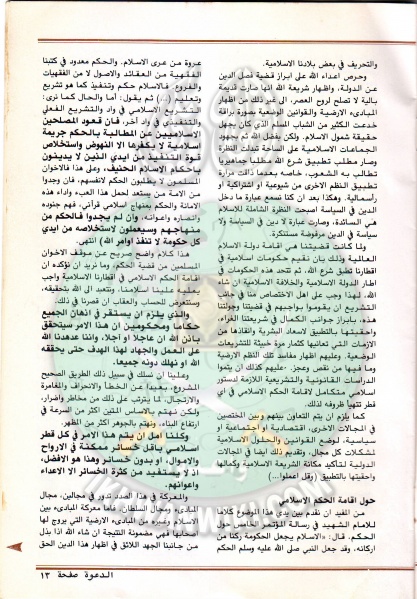 والتحريف في بعض بلادنا الاسلامية.
وحرص اعداء الله على ابراز قضية فصل الدين
عن الدولة، واظهار شريعة الله انها صارت قديمة
بالية لا تصلح لروح العصر، الى غير ذلك من اظهار
المبادىء الارضية والقوانين الوضعية بصورة براقة
خدعت الكثير من الشباب المسلم الذي كان يجهل
حقيقة شمول الاسلام. ولكن بفضل الله ثم بجهود
الجماعات الاسلامية على الساحة تبدلت النظرة
وصار مطلب تطبيق شرع الله مطلبا جماهيريا
تطالب به الشعوب، خاصه بعدما ذاقت مرارة
تطبيق النظم الاخرى من شيوعية أو اشتراكية أو
رأسمالية. وهكذا بعد ان كنا نسمع عبارة ما دخل
الدين في السياسة اصبحت النظرة الشاملة للاسلام
هي السائدة، وصارت عبارة لا دين في السياسة ولا
سياسة في الدين مرفوضة مستنكرة.
ولما كانت قضيتنا هي اقامة دولة الاسلام
العالمية وذلك بان نقيم حكومات اسلامية في
اقطارنا تطبق شرع الله، ثم تتحد هذه الحكومات في
اطار الدولة الاسلامية والخلافة الاسلامية ان شاء
الله. لهذا وجب على اهل الاختصاص منا في جانب
التشريع ان يقوموا بواجبهم في قضيتنا وجولتنا
هذه، بابراز جوانب الكمال في شريعتنا الغراء،
واحقيتها بالتطبيق لاسعاد البشرية وانقاذها من
الازمات التي تعانيها كثمار مرة خبيثة للتشريعات
الوضعية. وعليهم اظهار مفاسد تلك النظم الارضية
وما فيها من نقص وعجز، عليهم كذلك ان يتموا
الدراسات القانونية والتشريعية اللازمة لدستور
اسلامي متكامل لاقامة الحكم الاسلامي في أي
قطر تتهيأ ظروفه لذلك.
كما يلزم ان يتم التعاون بينهم وبين المختصين
في المجالات الاخرى، اقتصادية أو اجتماعية أو
سياسية، لوضع القوانين والحلول الاسلامية
لمشكلات كل مجال، وتقديم ذلك ايضا في المجالات
الدولية لتأكيد مكانة الشريعة الاسلامية وكمالها
واحقيتها بالتطبيق (وقل اعملوا...)
حول اقامة الحكم الاسلامي
من المفيد ان نقدم بين يدي هذا الموضوع كلاما
للامام الشهيد في رسالة المؤتمر الخامس حول
الحكم. قال: «الاسلام يجعل الحكومة ركنا من
اركانه، وقد جعل النبي صلى الله عليه وسلم الحكم
عروة من عرى الاسلام. والحكم معدود في كتبنا
الفقهية من العقائد والاصول لا من الفقهيات
والفروع. فالاسلام حكم وتنفيذ كما هو تشريع
وتعليم»، ثم يقول: أما والحال كما نرى:
التشريع الاسلامي في واد والتشريع الفعلي
والتنفيذي في واد آخر، فان قعود المصلحين
الاسلاميين عن المطالبة بالحكم جريمة
اسلامية لا يكفرها الا النهوض واستخلاص
قوة التنفيذ من ايدي الذين لا يدينون
باحكام الاسلام الحنيف، وعلى هذا فالاخوان
المسلمون لا يطلبون الحكم لانفسهم، فان وجدوا
من الامة من يستعد لحمل هذا العبء واداء هذه
الامانة والحكم بمنهاج اسلامي قرآني، فهم جنوده
وانصاره واعوانه، وان لم يجدوا فالحكم من
منهاجهم وسيعملون لاستخلاصه من ايدي
كل حكومة لا تنفذ اوامر الله) انتهى.
هذا كلام واضح صريح عن موقف الاخوان
المسلمين من قضية الحكم، وما نريد ان نؤكده ان
اقامة الحكم الاسلامي في اقطارنا الاسلامية واجب
يمليه علينا اسلامنا، ونتعبد الى الله بتحقيقه،
وسنتعرض للحساب والعقاب ان قصرنا في ذلك.
والذي يلزم ان يستقر في اذهان الجميع
حكاما ومحكومين ان هذا الامر سيتحقق
باذن الله ان عاجلا أو آجلا، واننا عاهدنا الله
على العمل والجهاد لهذا الهدف حتى يحققه
الله أو نهلك دونه جميعا.
وعلينا ان نسلك في سبيل ذلك الطريق الصحيح
المشروع، بعيدا عن الخطأ والانحراف والمغامرة
والارتجال، لما يترتب على ذلك من مخاطر واضرار،
ولكن نهتم بالاساس المتين اكثر من السرعة في
ارتفاع البناء، ونهتم بالجوهر اكثر من المظهر.
وكلنا أمل ان يتم هذا الامر في كل قطر
اسلامي باقل خسائر ممكنة في الارواح
والاموال، أو بدون خسائر وهذا هو الافضل،
اذ لا يستفيد من كثرة الخسائر الا الاعداء
واعوانهم.
والمعركة في هذا الصدد تدور في مجالين، مجال
المبادىء ومجال السلطان. فأما معركة المبادىء بين
الاسلام وغيره من المبادىء الارضية التي يروج لها
اعداؤنا فهي مضمونة النتيجة ان شاء الله اذا بذل
من جانبنا الجهد اللائق في اظهار هذا الدين الحق
الدعوة صفحة ١٣